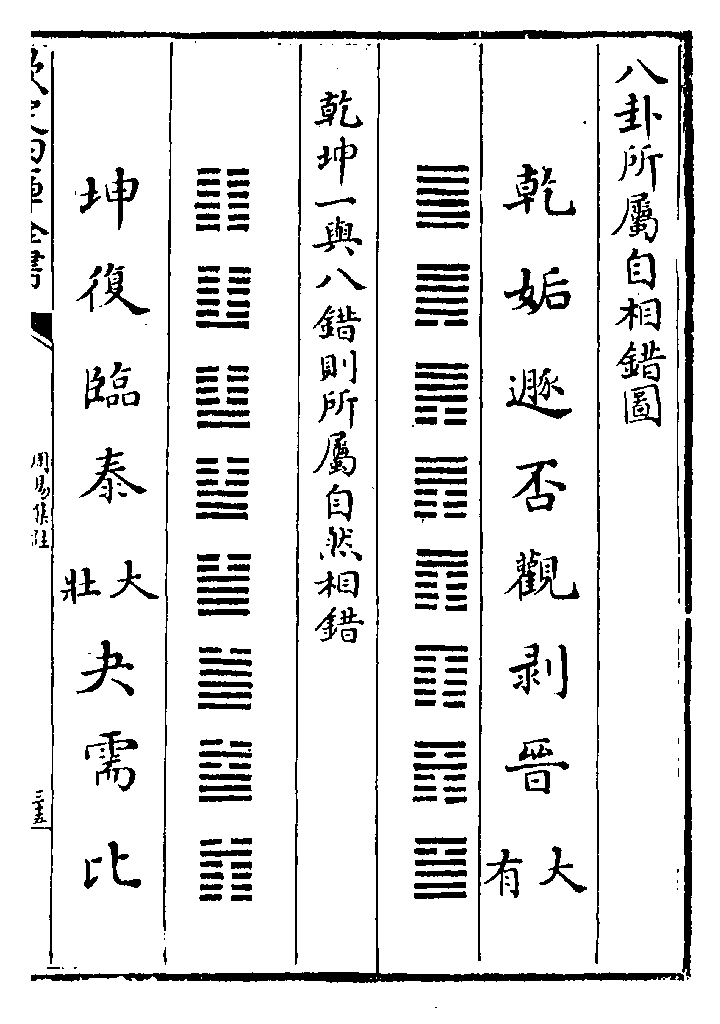 八卦所屬自相錯圖
乾 姤 遯 否 觀 剥 晉 大有
乾坤一與八錯則所屬自然相錯
坤 復 臨 泰 大壯 夬 需 比
欽定四庫全書
周易集註
三五